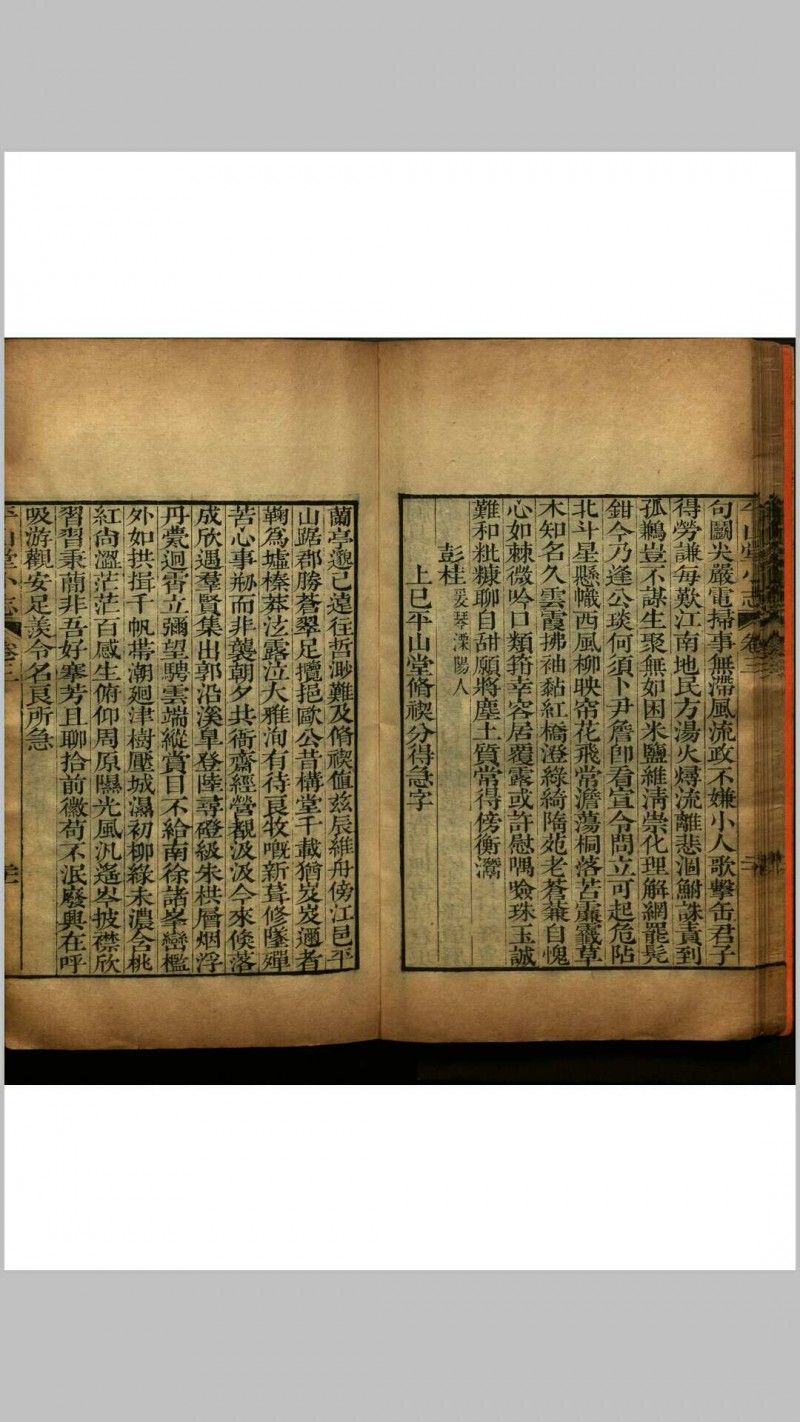 平山堂小志 卷三
句鬬尖嚴電掃事無滯風流政不嫌小人歌擊缶君子
得勞謙每歎江南地民方湯火燖流離悲涸鮒誅責到
孤鶼豈不謀生聚無如困米鹽維淸崇化理解網罷髡
鉗今乃逢公琰何須卜尹詹卽看宣令問立可起危阽
北斗星懸幟西風柳映帘花飛常澹蕩桐落苦廉纎草
木知名久雲霞拂袖黏紅橋澄綠綺隋苑老蒼蒹自愧
心如棘微吟口類箝幸容居覆露或許慰喁噞珠玉誠
難和粃糠聊自甜願將塵土質常得傍衡灊
彭桂 爰琴溧陽人
上巳平山堂脩禊分得急字
蘭亭邈已遠往哲渺難及脩禊值兹辰維舟傍江邑平
山踞郡勝蒼翠足攬挹歐公昔構堂千載猶岌岌邇者
鞠爲墟榛莽泫露泣大雅洵有待良牧嘅新葺修墜殫
苦心事刱而非襲朝夕共衙齋經營覩汲汲今來倏落
成欣遇羣賢集出郭沿溪皐登陸尋磴級朱栱層烟浮
丹甍迴霄立彌望騁雲端縱賞目不給南徐諸峯巒檻
外如拱揖千帆帶潮廻津樹壓城濕初柳綠未濃含桃
紅尙澀茫茫百感生俯仰周原隰光風汎遙岑披襟欣
習習秉蕳非吾好搴芳且聊拾前徽苟不泯廢興在呼
吸游觀安足羨令名良所急
平山堂小志 卷三